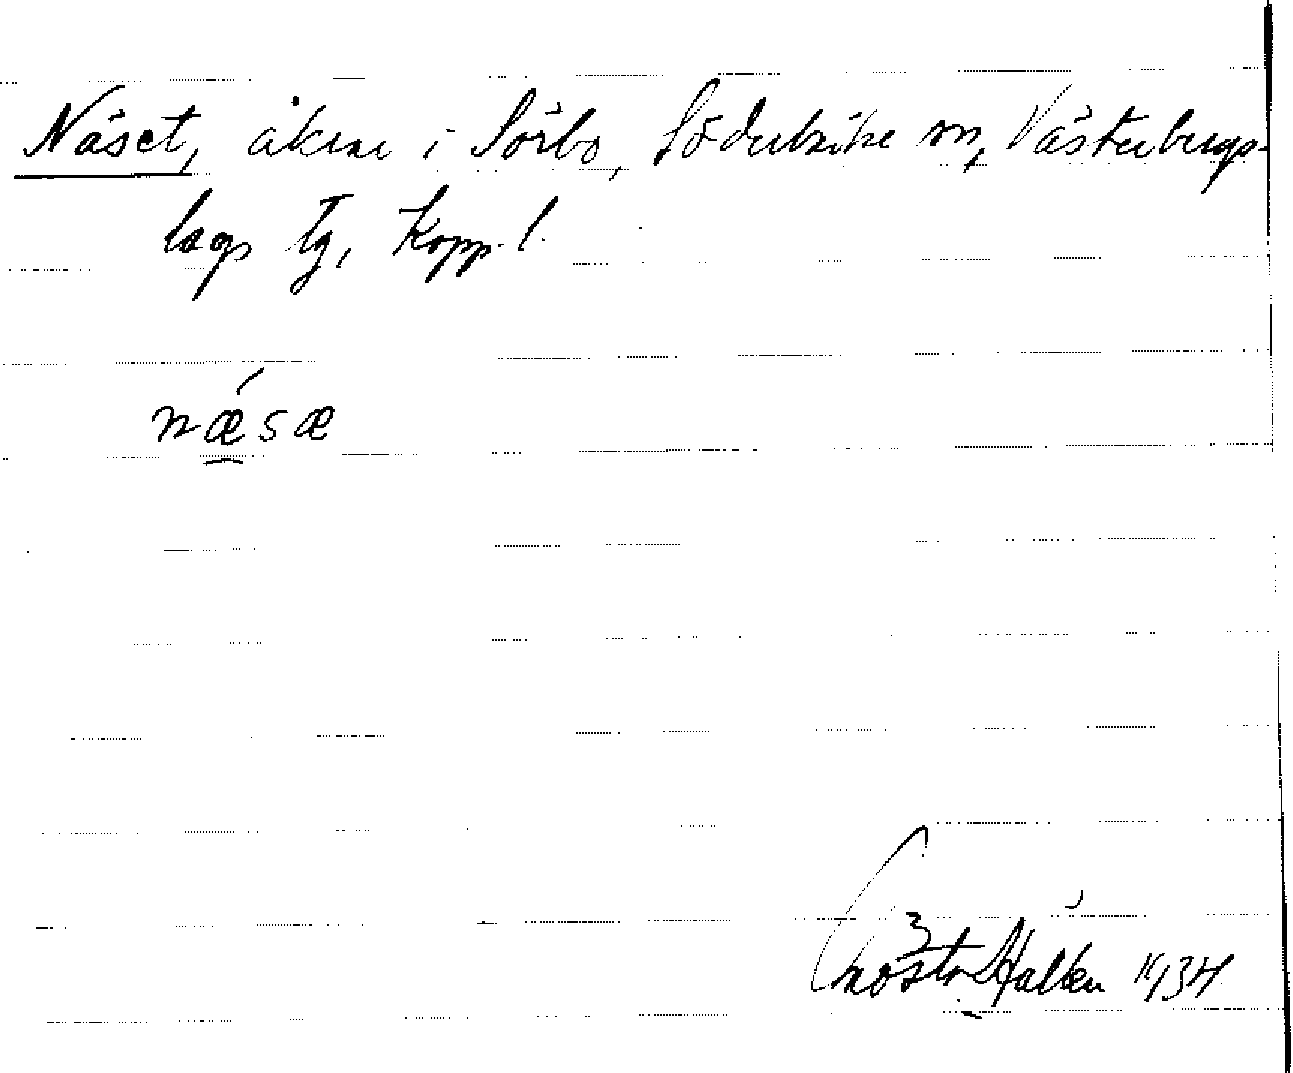 Näset, åkrar i Sörbo, Söderbärke sn, Västerbergs-
lags tg, Kopp. l.
nǽ̠sæ
Gösta Hallén 1934